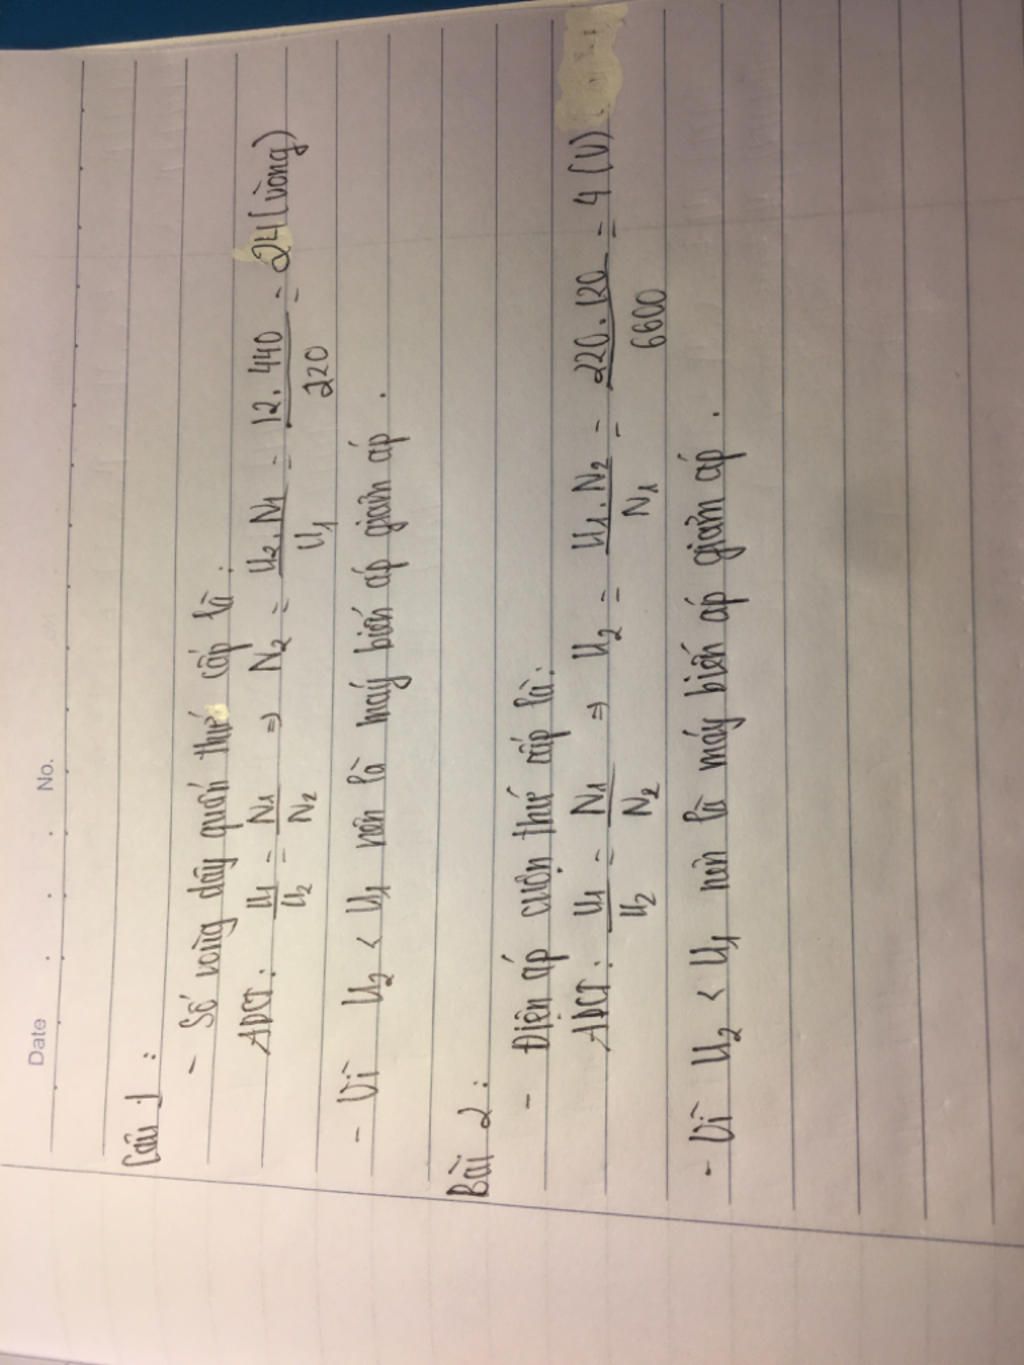 Date . . . No.
Câu 1 :
- Số vòng dây quấn thứ cấp là :
ADCT : U1/U2 = N1/N2 => N2 = U2.N1/U1 = 12.440/220 = 24 (vòng)
- Vì U2 < U1 nên là máy biến áp giảm áp .
Bài 2 :
- Điện áp cuộn thứ cấp là :
ADCT : U1/U2 = N1/N2 => U2 = U1.N2/N1 = 220.120/6600 = 4 (V)
- Vì U2 < U1 nên là máy biến áp giảm áp .